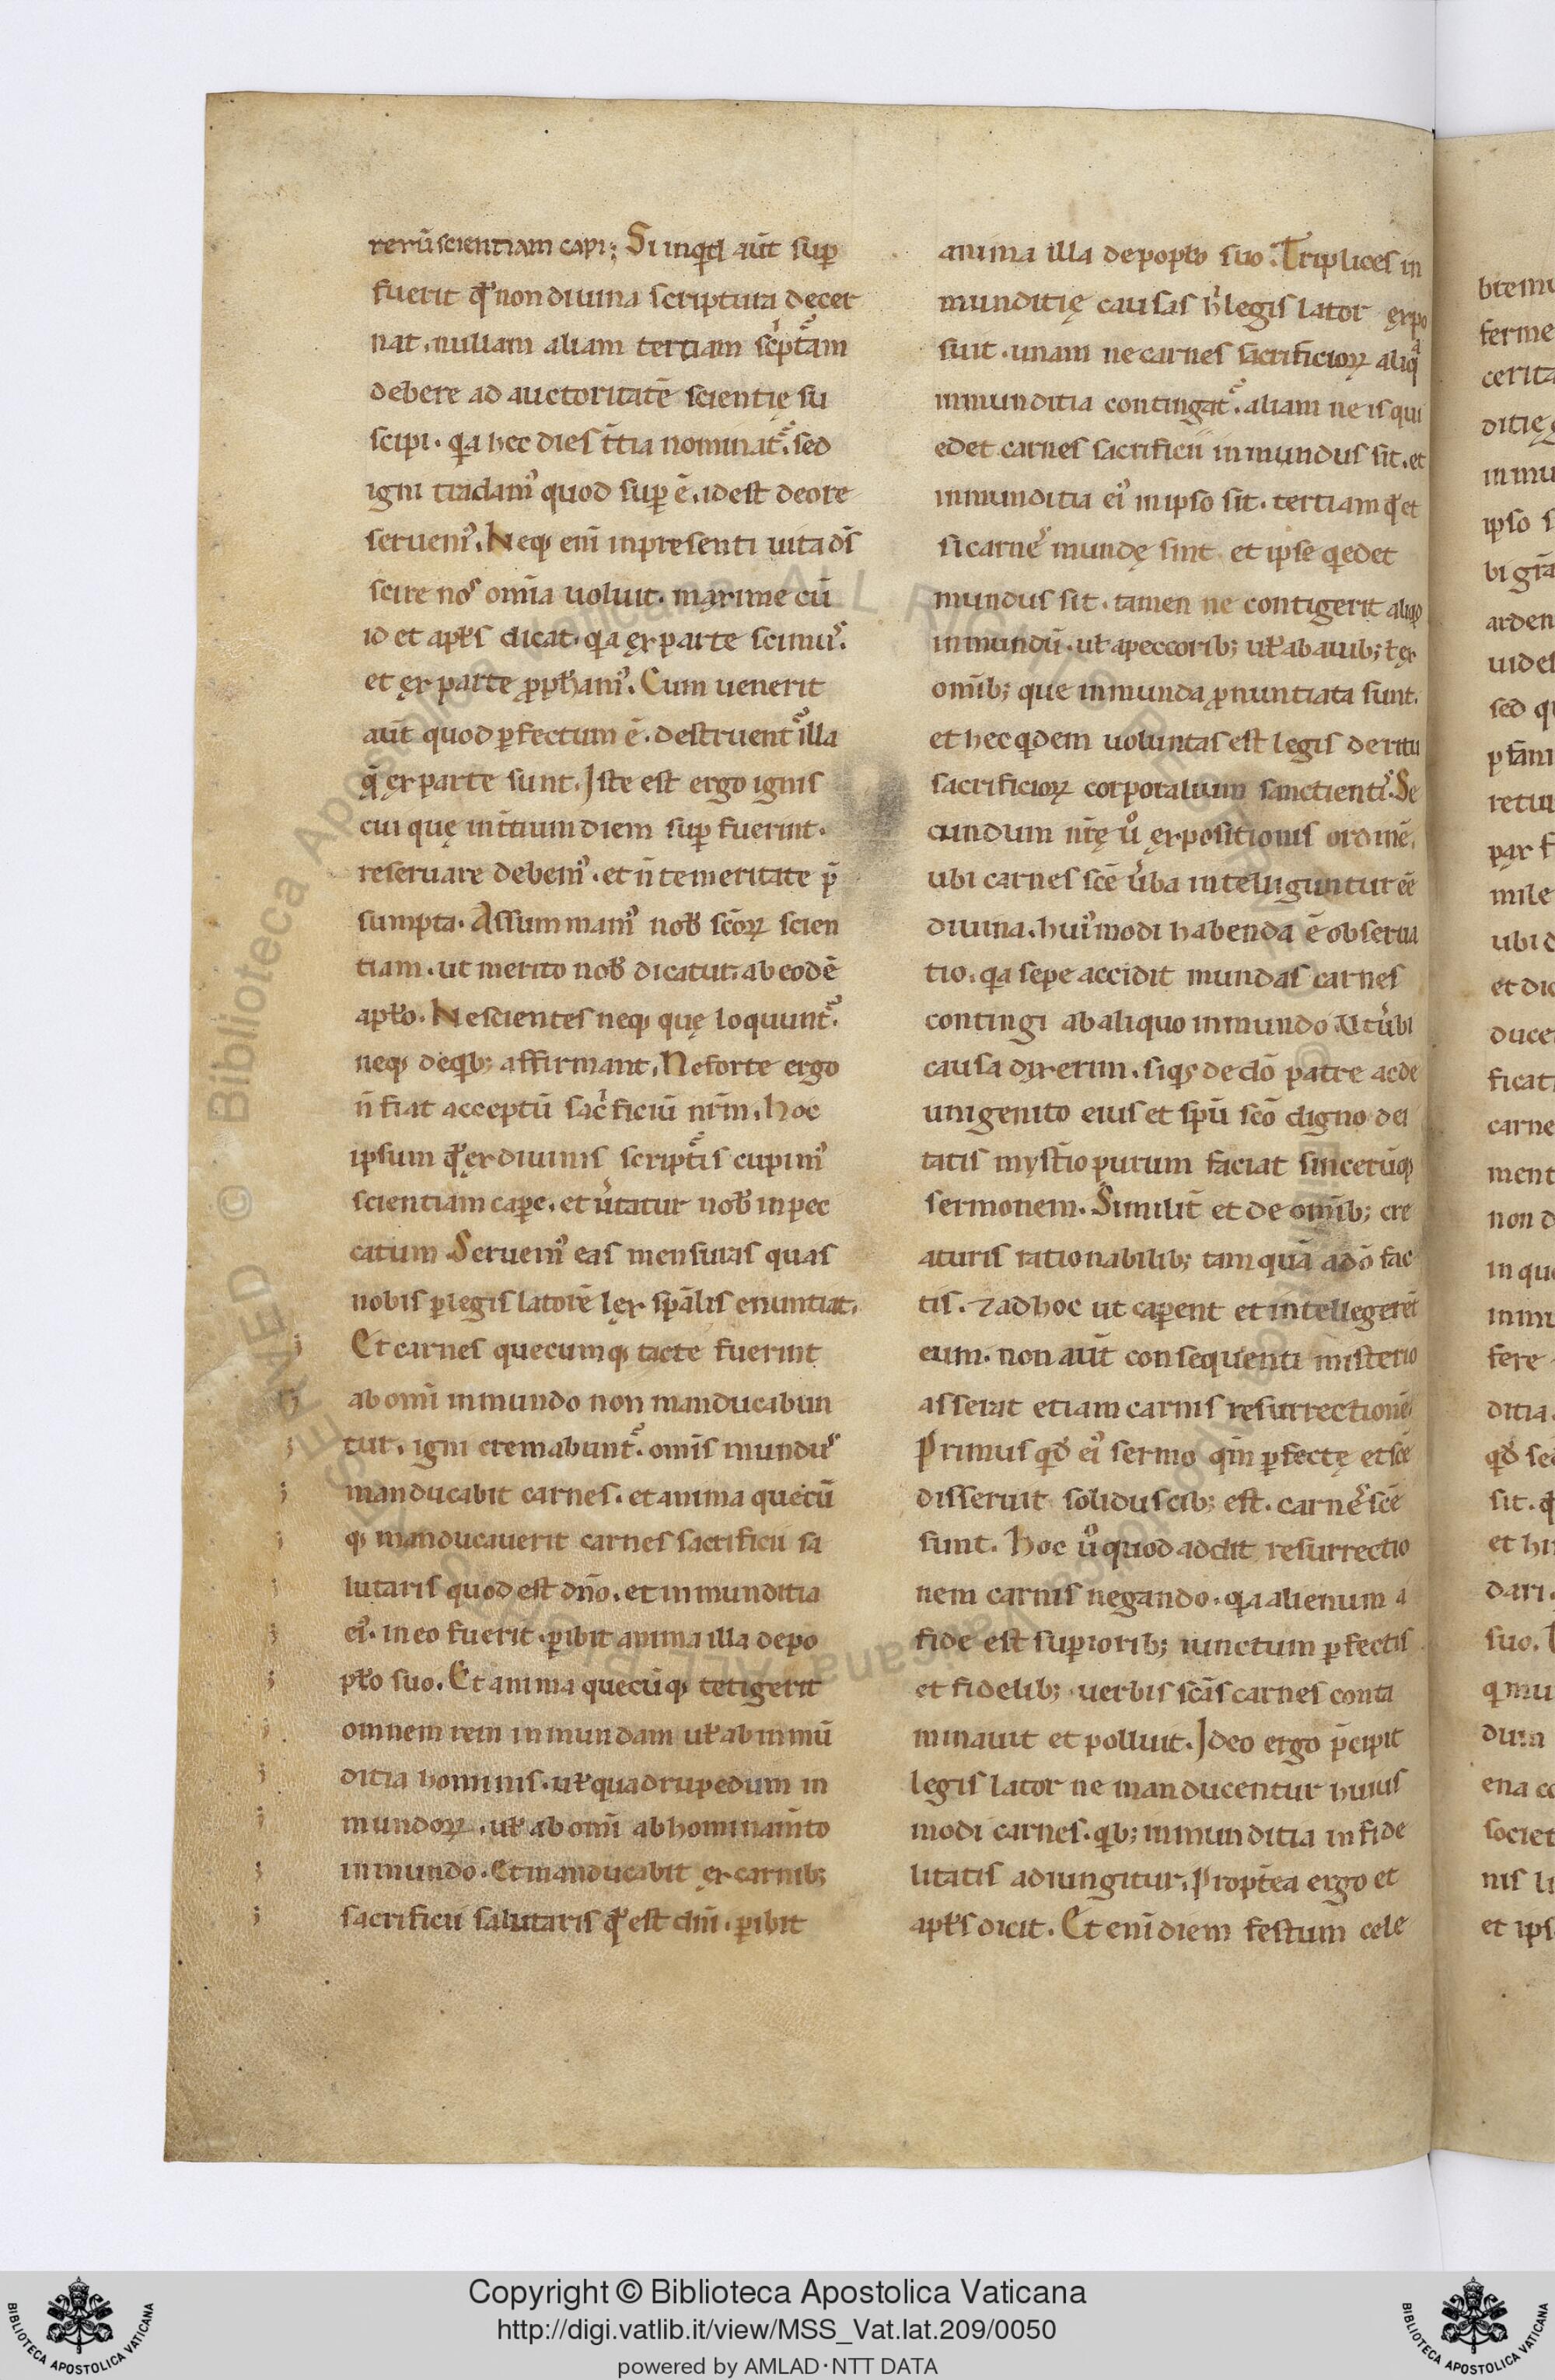 rerū scientiam capi; Si inq̇d aūt sup̱
fuerit qđ non diuina scriptura decer
nat. nullam aliam tertiam scͥpt᷒am
debere ad auctoritatē scientię su
scipi. qa hec dies t̄tia nominat᷒. sed
igni tradam᷒ quod sup̱ ē. id est deo re
seruem᷒. Neq; eni᷒ in presenti uita ds̄
scire nos om̄ia uoluit. maxime cū
id et apłs dicat. qa ex parte scimus.
et ex parte ꝓph̄am᷒. Cum uenerit
aūt quod ꝑfectum ē. destruent᷒ illa
q̄ ex parte sunt. Iste est ergo ignis
cui quę in t̄tium diem sup̱ fuerint.
reseruare debem᷒. et n̄ temeritate p̄
sumpta. Assummam᷒ nob̄ scōꝝ scien
tiam. ut merito nob̄ dicatur ab eodē
apło. Nescientes neq; quę loquunt᷒.
neq; de qb; affirmant. Ne forte ergo
n̄ fiat acceptū sacͥficiū nr̄m. hoc
ipsum qđ ex diuinis script᷒is cupim᷒
scientiam caꝑe. et u̓tatur nob̄ in pec
catum Seruem᷒ eas mensuras quas
nobis ꝑ legislatorē lex sp̄alis enuntiat.
Et carnes quecumq; tacte fuerint
ab omī inmundo non manducabun
tur. igni cremabunt᷒. om̄is mundus
manducabit carnes. et anima quecū
q; manducauerit carnes sacrificii sa
lutaris quod est dn̄o. et inmunditia
ei᷒. in eo fuerit. ꝑibit anima illa de po
pło suo. Et anima quecūq; tetigerit
omnem rem inmundam uł ab inmū
ditia hominis. uł quadrupedum in
mundoꝝ. uł ab omī abhominam̄to
inmundo. Et manducabit ex carnib;
sacrificii salutaris qđ est dn̄i. ꝑibit
anima illa de popło suo. Triplices in
munditię causas hͥ legislator expo
suit. unam ne carnes sacrificioꝝ aliqͣ
inmunditia contingat᷒. aliam ne is qui
edet carnes sacrificii inmundus sit. et
inmunditia ei᷒ in ipso sit. tertiam qđ et
si carnes mundę sint et ipse q̇ edet
mundus sit. tamen ne contigerit aliqͦ
inmundū. uł a peccorib; uł ab auib; ł ex
omīb; que inmunda ꝓnuntiata sunt.
et hec q̇dem uoluntas est legis de ritu
sacrificioꝝ corporalium sanctienti᷒. Se
cundum nr̄ę uͦ expositionis ordinē.
ubi carnes scē u̓ba intelliguntur eē
diuina. hui᷒modi habenda ē obserua
tio. qa sepe accidit mundas carnes
contingi ab aliquo inmundo. Ut u̓bi
causa dixerim. siq;s de dō patre ac de
unigenito eius et sp̄u scō digno dei
tatis myst̄io purum faciat sincerūq;
sermonem. Similit̄ et de omīb; cre
aturis rationabilib; tamquā a dō fac
tis. ⁊ ad hoc ut caꝑent et intellegerēt
eum. non aūt consequenti misterio
asserat etiam carnis resurrectionē.
Primus qđ ei᷒ sermo qm̄ ꝑfectę et scē
disseruit solidus cib; est. carnes scē
sunt. Hoc uͦ quod addit resurrectio
nem carnis negando. qa alienum a
fide est suꝑiorib; iunctum ꝑfectis
et fidelib; uerbis scās carnes conta
minauit et polluit. Ideo ergo p̄cipit
legislator ne manducentur huius
modi carnes. qb; inmunditia infide
litatis adiungitur. Propt̄ea ergo et
apłs dicit. Et eni᷒ diem festum cele
Copyright © Biblioteca Apostolica Vaticana
http://digi.vatlib.it/view/MSS_Vat.lat.209/0050
powered by AMLAD·NTT DATA
BIBLIOTECA APOSTOLICA VATICANA
BIBLIOTECA APOSTOLICA VATICANA